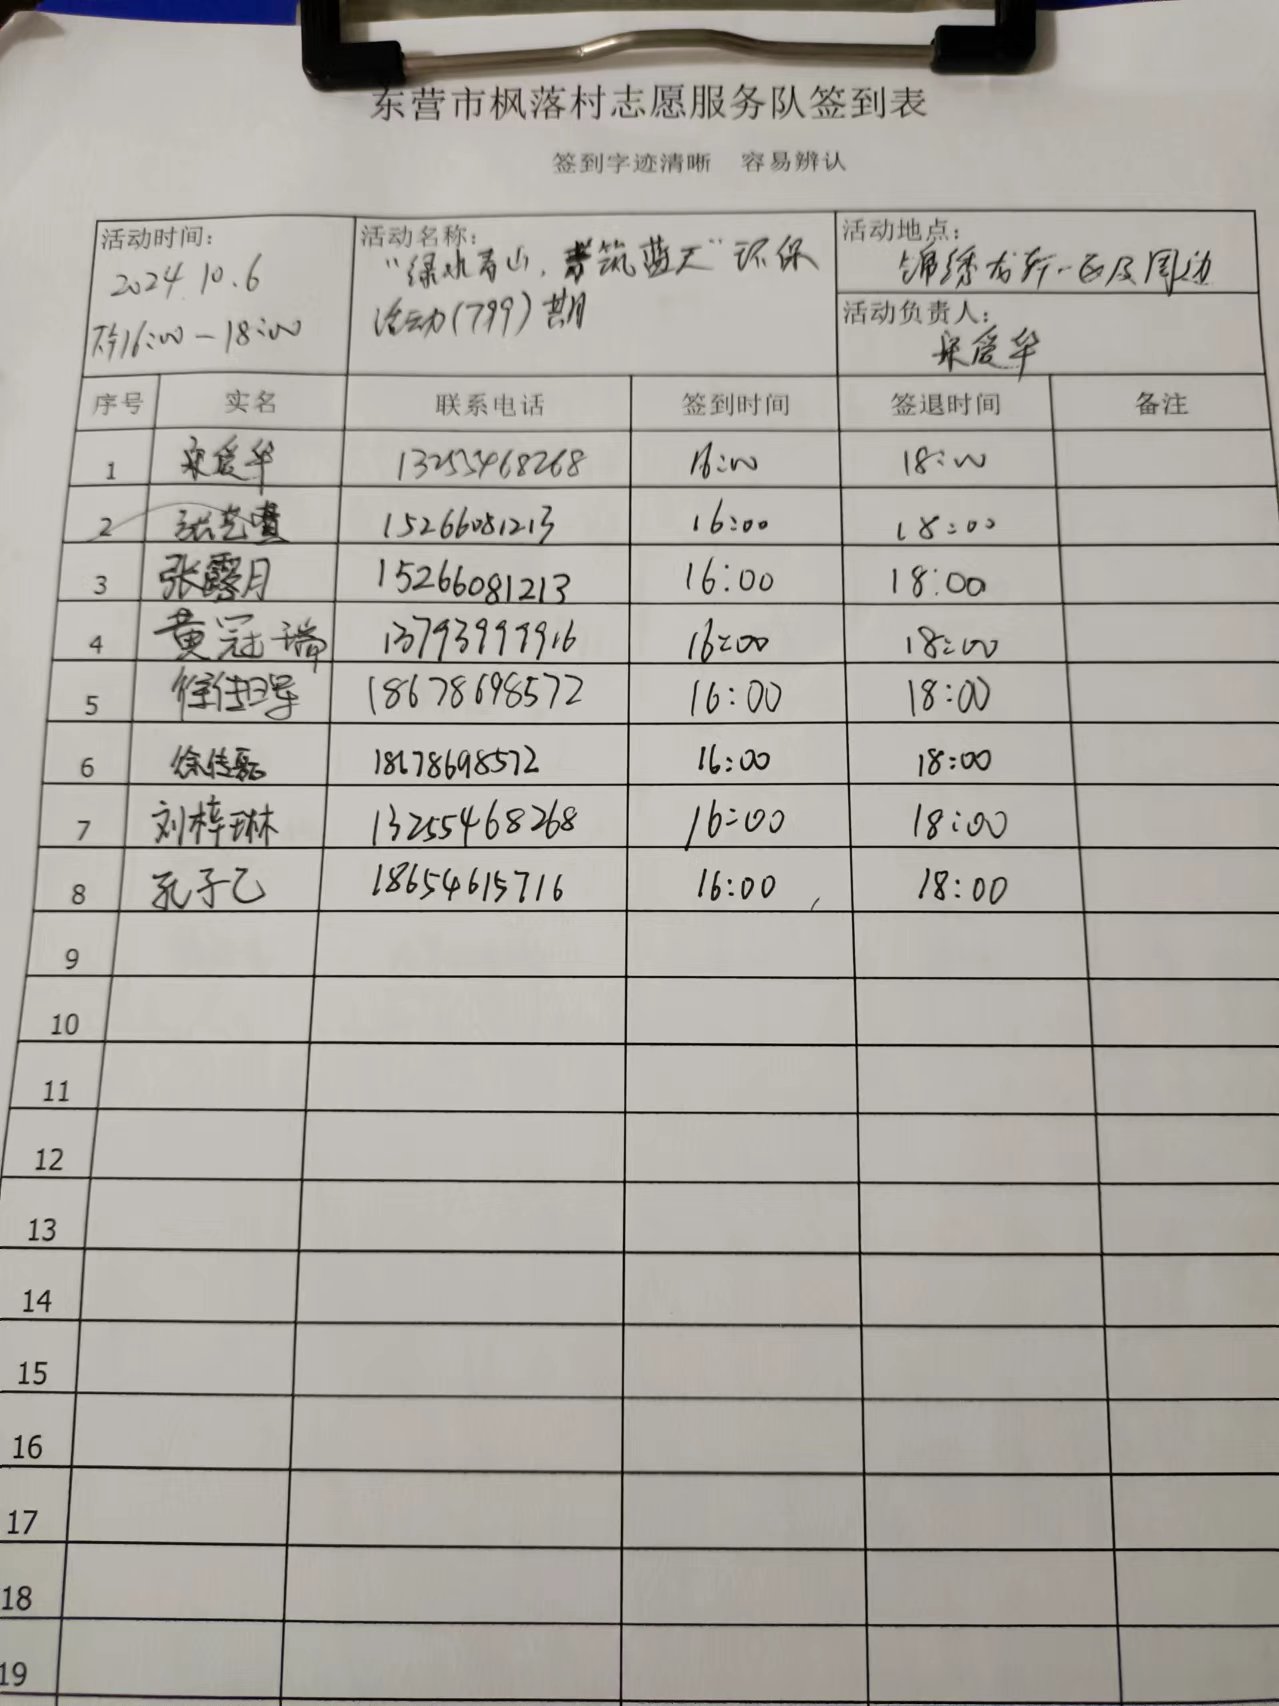 东营市枫落村志愿服务队签到表
签到字迹清晰 容易辨认
活动时间:
2024.10.6
下午16:00-18:00
活动名称:
"绿水青山,筑蓝天"环保
活动(799)期
活动地点:
锦绣龙轩一区及周边
活动负责人:
宋爱华
序号 实名 联系电话 签到时间 签退时间 备注
1 宋爱华 13255468268 16:00 18:00
2 张艺 15266081213 16:00 18:00
3 张露月 15266081213 16:00 18:00
4 黄冠瑞 13793999916 16:00 18:00
5 18678698572 16:00 18:00
6 徐传磊 18678698572 16:00 18:00
7 刘梓琳 13255468268 16:00 18:00
8 孔子乙 18654615716 16:00 18:00
9
10
11
12
13
14
15
16
17
18
19